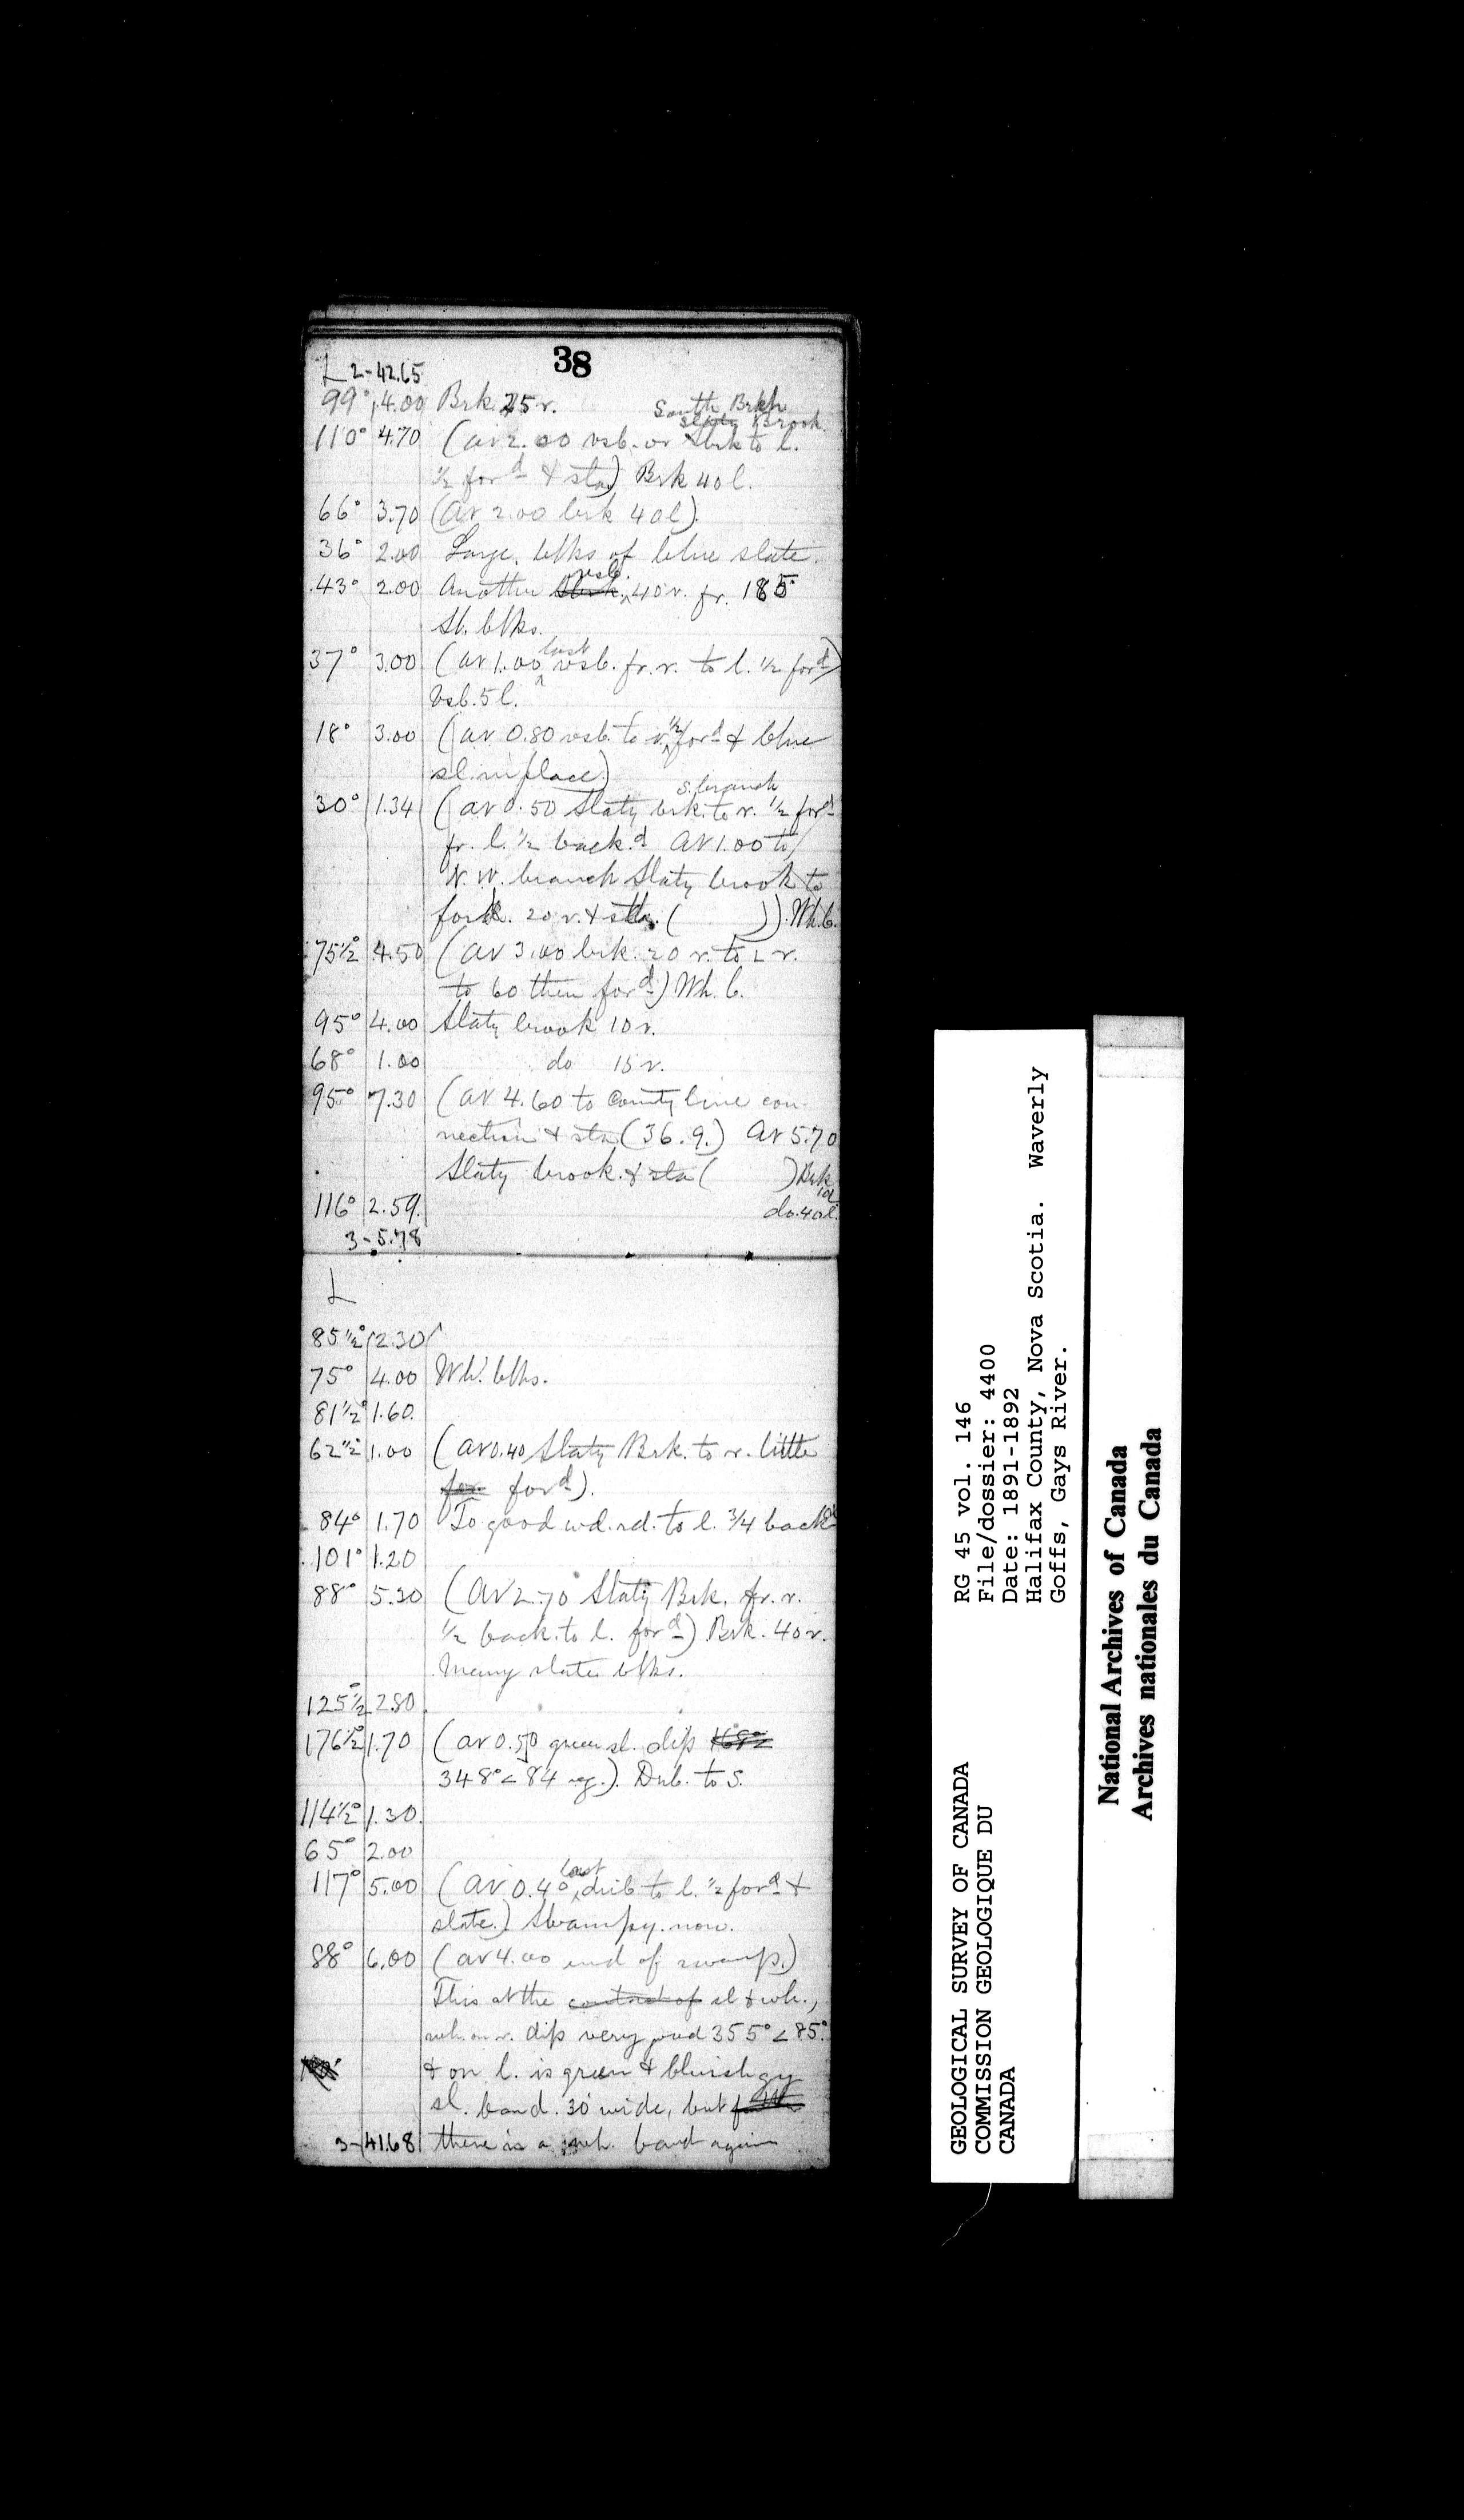 38
L 2-42.65
99° 4.00 Brk. 25 r.
South Brch
Slaty Brook
110° 4.70 (at 2.00 vsb. or brk to l.
½ ford & sta) Brk 40 l.
66° 3.70 (at 2.00 brk 40 l).
36° 2.00 Large blks of blue slate.
43° 2.00 Another vsb. 40 r. fr. 185°
Sl. blks.
37° 3.00 (at 1.00 last vsb. fr. r. to l. ½ ford)
Vsb. 5 l.
18° 3.00 (at 0.80 vsb. to r. ½ ford & blue
sl. in place)
s. branch
30° 1.34 (at 0.50 Slaty brk. to r. ½ ford
fr. l. ½ backd At 1.00 to
N. W. branch Slaty brook to
20 r. & sta. ( )). Wh. b.
75½° 4.50 (at 3.00 brk. 20 r. to L r.
to 60 then ford) Wh. b.
95° 4.00 Slaty brook 10 r.
68° 1.00 do 15 r.
95° 7.30 (at 4.60 to County line con-
nection & sta (36.9.) At 5.70
Slaty brook & sta ( ) Brk
10l
116° 2.59. do. 40 l.
3-5.78
L
85½° 2.30
75° 4.00 Wh. blks.
81½° 1.60.
62½° 1.00 (at 0.40 Slaty Brk. to r. little
for ford).
84° 1.70 To good wd. rd. to l. ¾ backd
101° 1.20
88° 5.30 (at 2.70 Slaty Brk. fr. r.
½ back. to l. ford) Brk. 40 r.
Many slate blks.
125½° 2.80
176½° 1.70 (at 0.50 green sl. dip 168°
348° < 84 reg.). Dub. to S.
114½° 1.30.
65° 2.00
117° 5.00 (at 0.40 last dub to l. ½ ford &
slate.) Swampy. now.
88° 6.00 (at 4.00 end of swamp.)
This at the contact of sl & wh.,
wh. on r. dip very good 355° < 85°.
& on l. is green & bluish gy
sl. band. 30' wide, but
3-41.68 there is a wh. band again
RG 45 vol. 146
File/dossier: 4400
Date: 1891-1892
Halifax County, Nova Scotia. Waverly
Goffs, Gays River.
GEOLOGICAL SURVEY OF CANADA
COMMISSION GEOLOGIQUE DU
CANADA
National Archives of Canada
Archives nationales du Canada